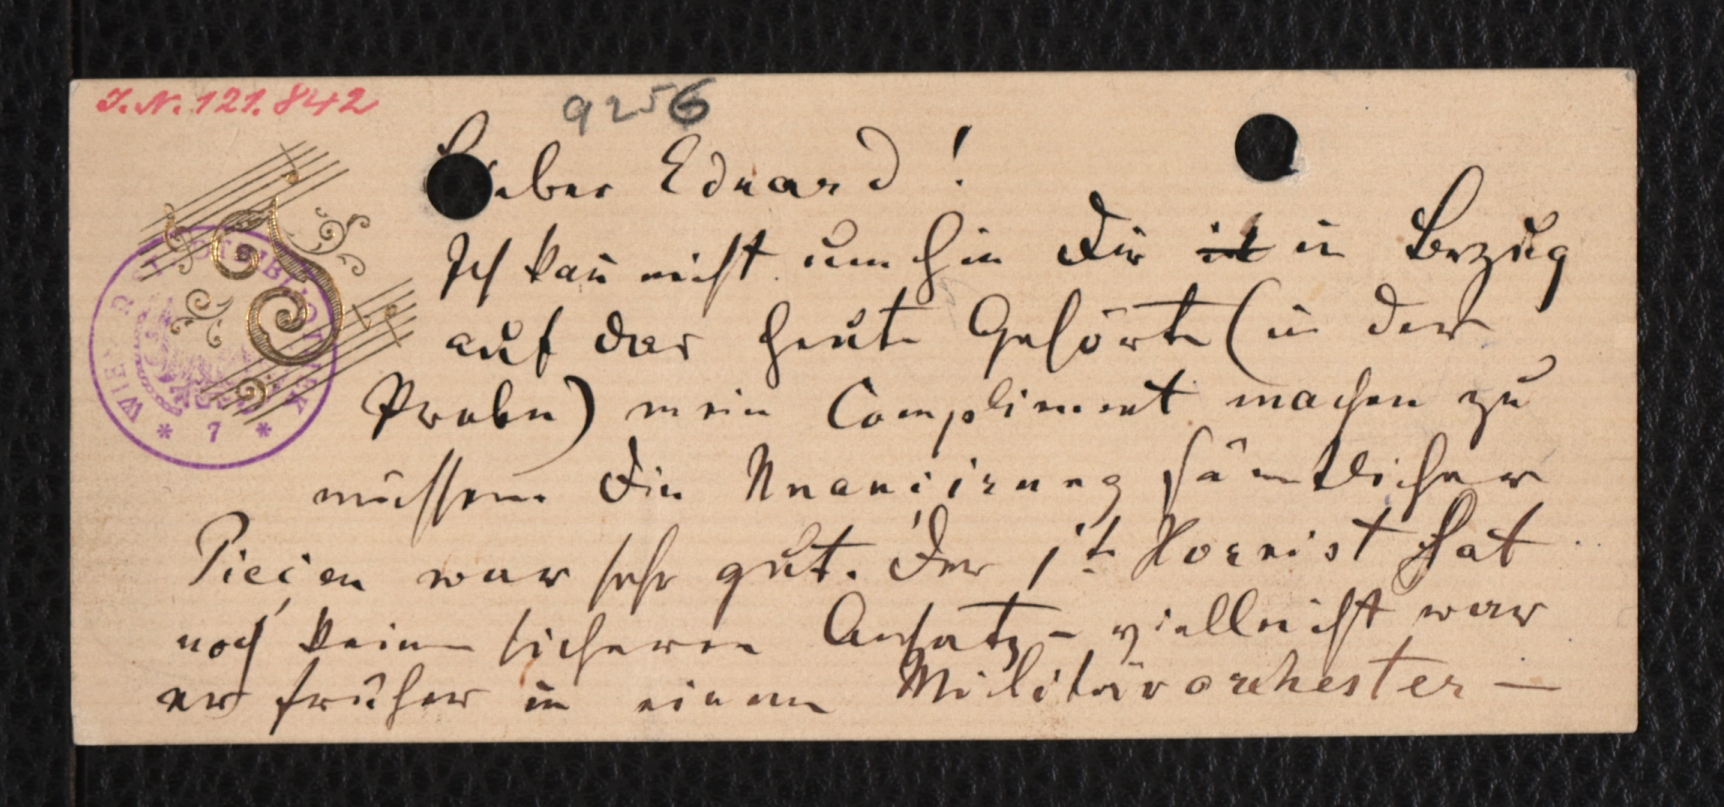 I. N. 121.842
9256
Lieber Eduard!
Ich kan̄ nicht umhin Dir in Bezug
auf das heute Gehörte (in der
Probe) mein Compliment machen zu
müssen. Die Nuancirung sämtlicher
Piecen war sehr gut. Der 1te Hornist hat
noch keinen sicheren Ansatz – vielleicht war
er früher in einem Militärorchester –
WIENER STADTBIBLIOTHEK
* 7 *